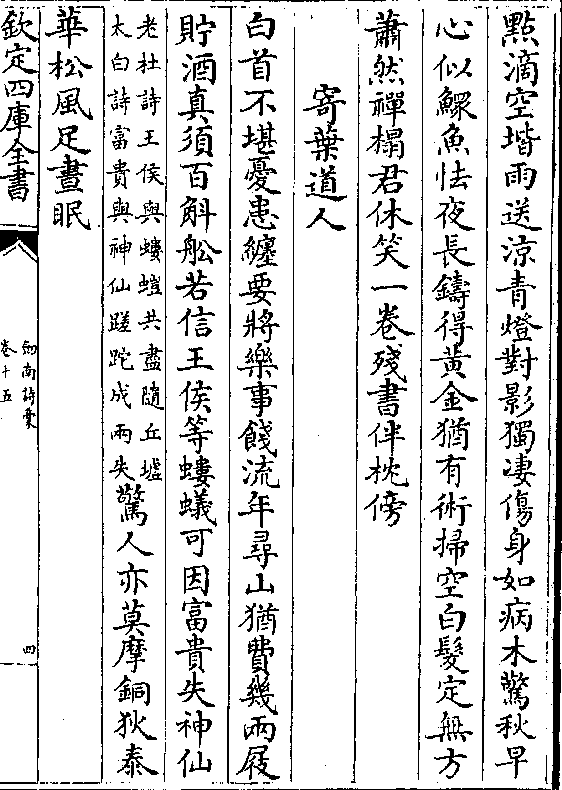 點滴空堦雨送涼青燈對影獨凄傷身如病木驚秋早
心似鰥魚怯夜長鑄得黃金猶有術掃空白髮定無方
蕭然禪榻君休笑一卷殘書伴枕傍
寄葉道人
白首不堪憂患纏要將樂事餞流年尋山猶費幾兩屐
貯酒真須百斛船若信王侯等螻蟻可因富貴失神仙
老杜詩王侯與螻螘共盡隨丘墟
太白詩富貴與神仙蹉跎成兩失
驚人亦莫摩銅狄泰
華松風足晝眠
欽定四庫全書
劒南詩稾
卷十五
四